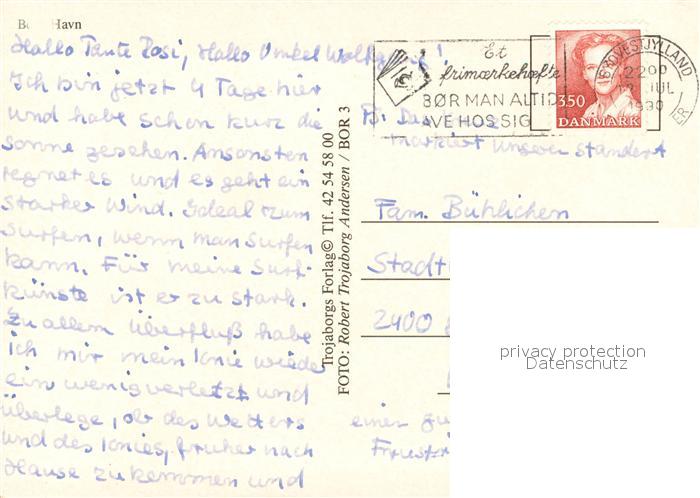 Havn
Hallo Tante Rosi, Hallo Onkel Wolfgang!
Ich bin jetzt 4 Tage hier
und habe schon kurz die
Sonne gesehen. Ansonsten
regnet es und es geht ein
starker Wind. Ideal zum
Surfen, wenn man Surfen
kann. Für meine Surf-
künste ist er zu stark.
Zu allem Überfluß habe
ich mir mein Knie wieder
ein wenig verletzt und
überlege, ob des Wetters
und des Knies, früher nach
Hause zu kommen und
Trojaborgs Forlag© Tlf. 42 54 58 00
FOTO: Robert Trojaborg Andersen / BOR 3
Et
frimærkehæfte
BØR MAN ALTID
HAVE HOS SIG
3.50
DANMARK
SYDVESTJYLLAND
2200
JUL
1990
markiert unseren Standort
Fam. Bühlichen
Stadt
2400
einen
privacy protection
Datenschutz